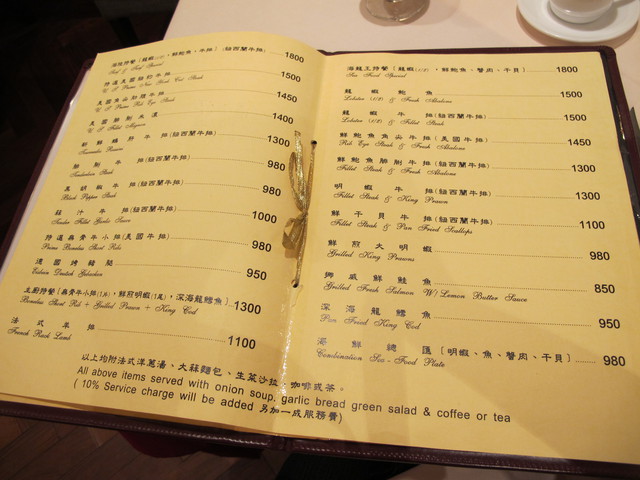 海陸特餐(龍蝦(1/2)，鮮鮑魚、牛排)(紐西蘭牛排) 1800
特選美國紐約牛排 1500
美國魚崙牛排 1450
美國 1400
牛排(紐西蘭牛排) 1300
Tournedos Rossini
牛排(紐西蘭牛排) 980
Tenderloin Steak
黑胡椒牛排(紐西蘭牛排) 980
Black Pepper Steak
蒜汁牛排(紐西蘭牛排) 1000
Tender Fillet Garlic Sauce
特選無骨牛小排(美國牛排) 980
Prime Boneless Short Ribs
德國烤豬腿 950
主廚特餐(無骨牛小排(1片)，鮮煎明蝦(1隻)，深海龍鱈魚) 1300
Boneless Short Rib + Grilled Prawn + King Cod
法式羊排 1100
French Rack Lamb
以上均附法式洋蔥湯、大蒜麵包、生菜沙拉、咖啡或茶。
All above items served with onion soup, garlic bread green salad & coffee or tea
( 10% Service charge will be added 另加一成服務費)
海龍王特餐(龍蝦(1/2)，鮮鮑魚、蟹肉、干貝) 1800
Sea Food Special
龍蝦鮑魚 1500
Lobster (1/2) & Fresh Abalone
龍蝦牛排(紐西蘭牛排) 1500
Lobster (1/2) & Fillet Steak
鮮鮑魚魚崙牛排(美國牛排) 1450
Rib Eye Steak & Fresh Abalone
鮮鮑魚牛排(紐西蘭牛排) 1300
Fillet Steak & Fresh Abalone
明蝦牛排(紐西蘭牛排) 1300
Fillet Steak & King Prawn
鮮干貝牛排(紐西蘭牛排) 1100
Fillet Steak & Pan Fried Scallops
鮮煎大明蝦 980
Grilled King Prawns
挪威鮮鮭魚 850
Grilled Fresh Salmon W/ Lemon Butter Sauce
深海龍鱈魚 950
Pan Fried King Cod
海鮮總匯(明蝦、魚、蟹肉、干貝) 980
Combination Sea-Food Plate